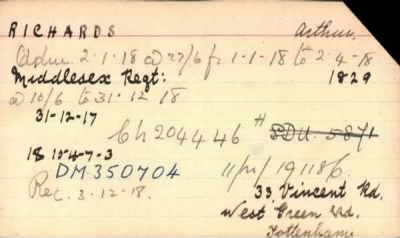 RICHARDS Arthur.
Admn 2·1·18 @ 27/6 fr 1-1-18 to 2-4-18
Middlesex Regt: 1829
@ 10/6 to 31-12-18
31-12-17
Ch 204446 # SDU. 5871
18 15-4-7-3
DM. 350704 11/M/191186.
Rec. 3-12-18. 33, Vincent Rd.
West Green Rd.
Tottenham